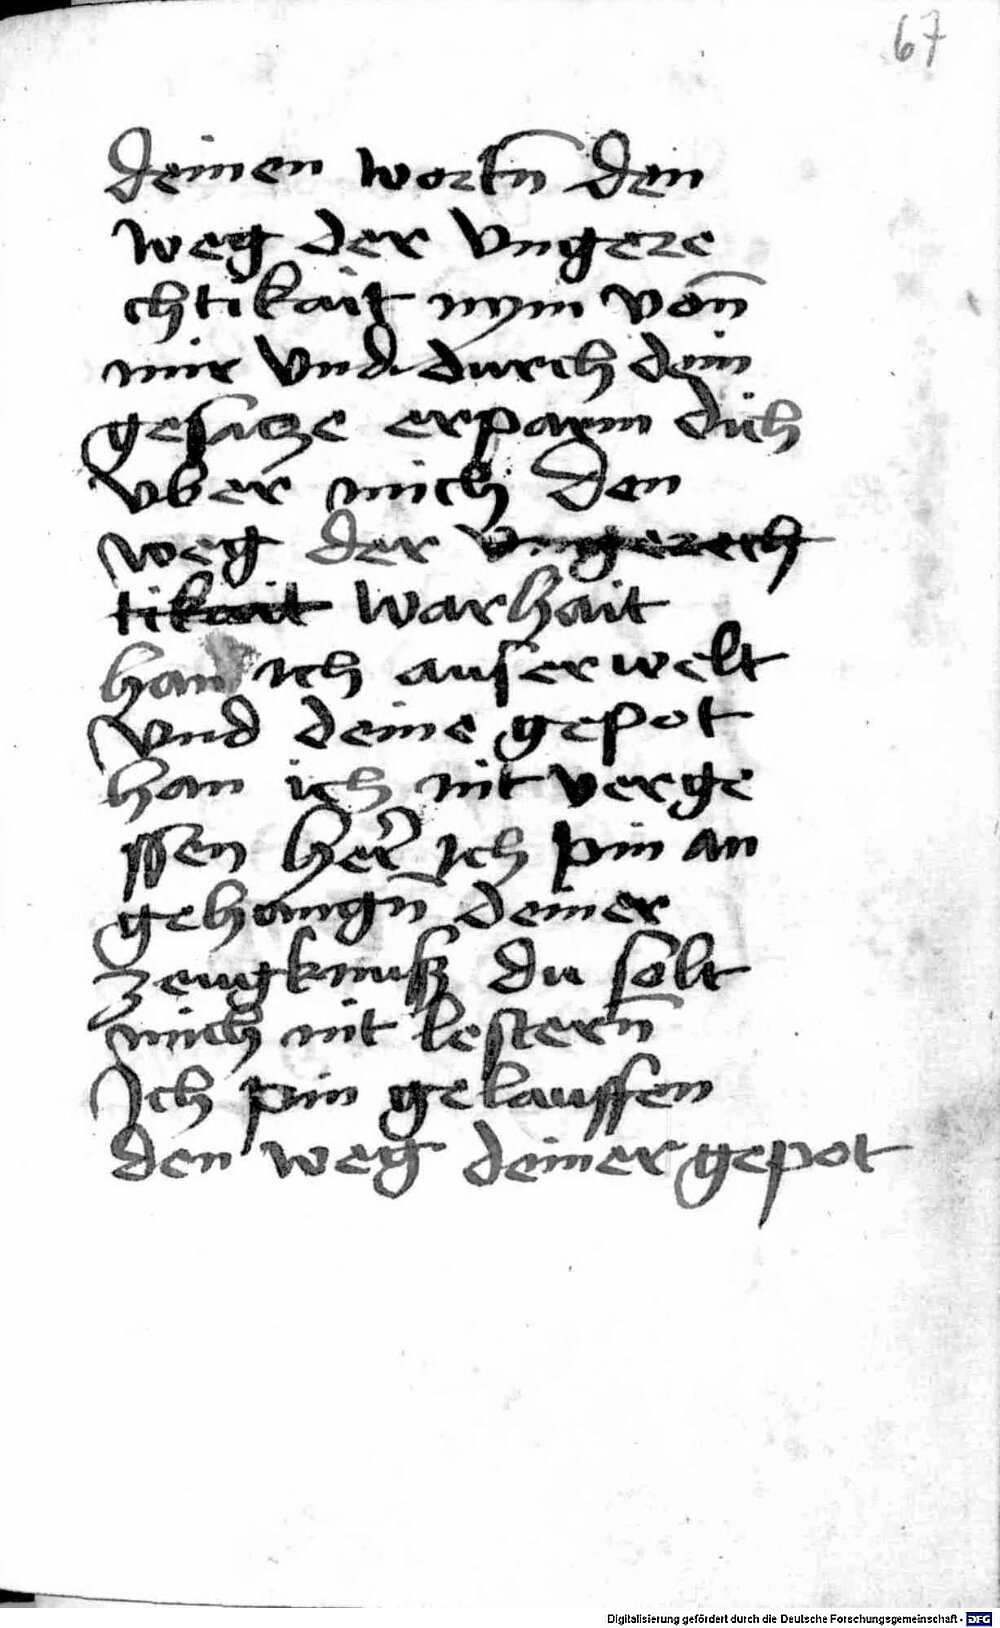 67
deinen wortn̄ den
weg der vngere
chtikait nym von̄
mir vnd durch dein
gesacze erparm dich
vber mich den
weg der vngerech
tikait warhait
han ich auserwelt
vnd deine gepot
han ich nit verge
ssen her̄ ich pin an
gehangn̄ deiner
zeugknusz du solt
mich nit lestern̄
Ich pin gelaussen
den weg deiner gepot
Digitalisierung gefördert durch die Deutsche Forschungsgemeinschaft - DFG